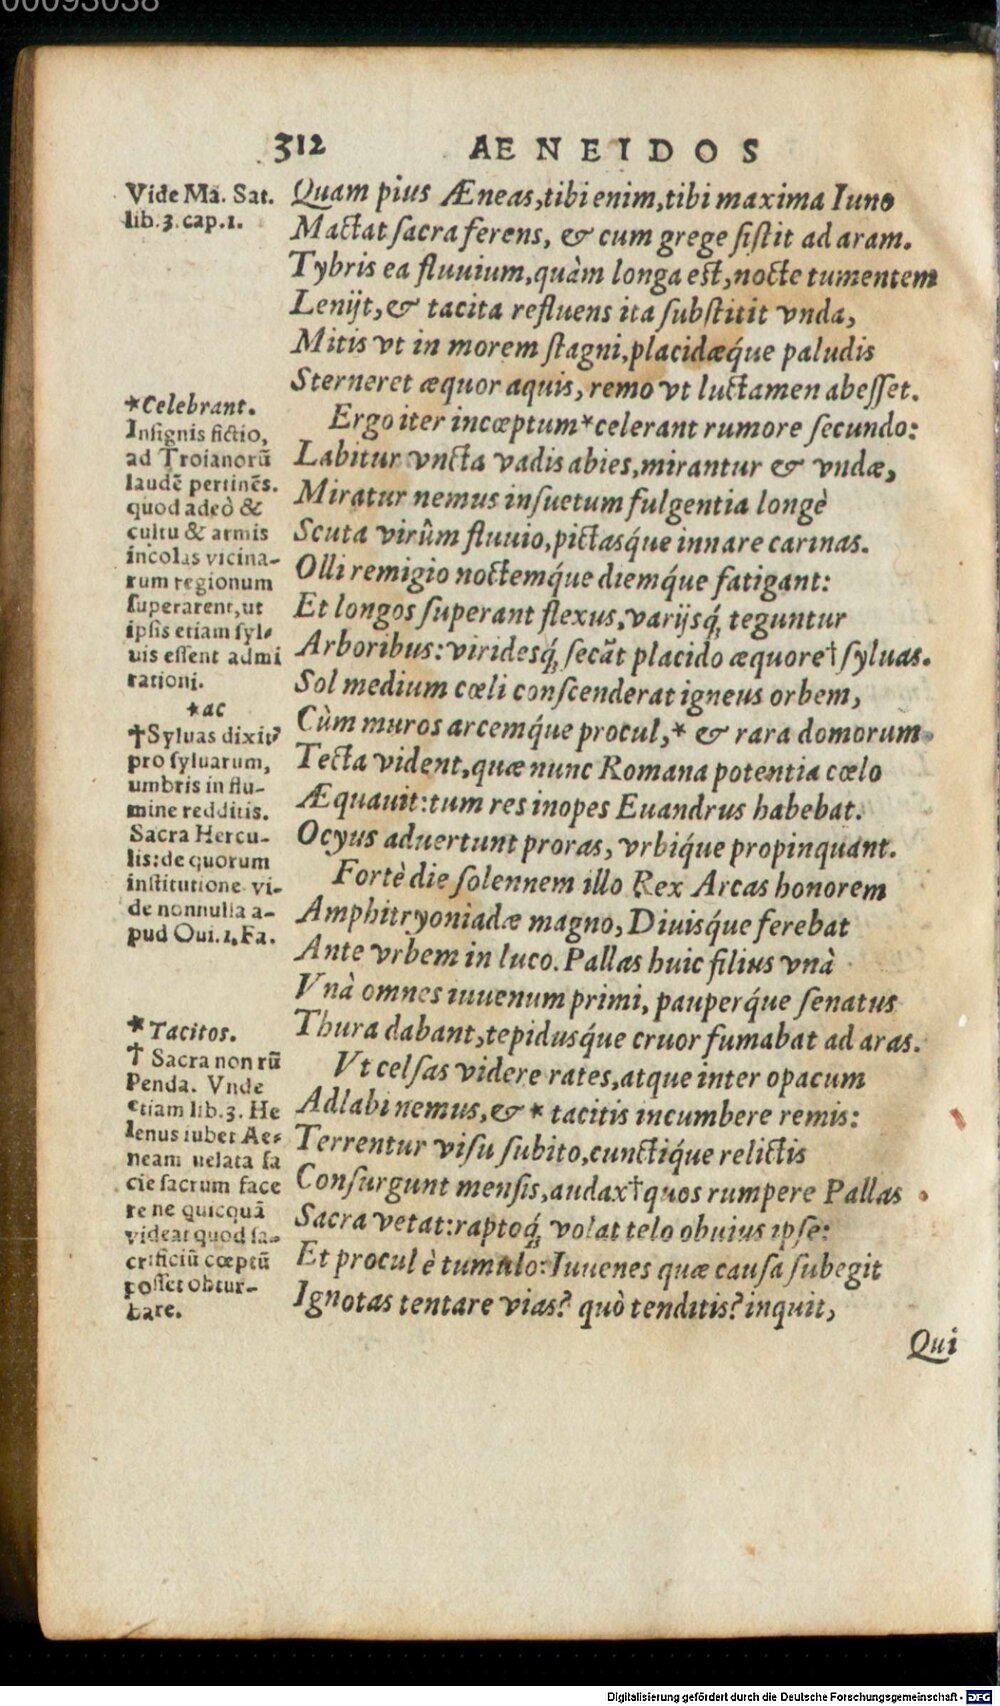 00093038
312 AENEIDOS
Vide Mã. Sat.
lib. 3. cap. 1.
Quam pius Æneas, tibi enim, tibi maxima Iuno
Mactat sacra ferens, & cum grege sistit ad aram.
Tybris ea fluuium, quàm longa est, nocte tumentem
Lenijt, & tacita refluens ita substitit vnda,
Mitis vt in morem stagni, placidæq́ue paludis
Sterneret æquor aquis, remo vt luctamen abesset.
Ergo iter incœptum * celerant rumore secundo:
Labitur vncta vadis abies, mirantur & vndæ,
Miratur nemus insuetum fulgentia longè
Scuta virûm fluuio, pictasq́ue innare carinas.
Olli remigio noctemq́ue diemq́ue fatigant:
Et longos superant flexus, varijsq́; teguntur
Arboribus: viridesq́; secãt placido æquore † syluas.
Sol medium cœli conscenderat igneus orbem,
Cùm muros arcemq́ue procul, * & rara domorum
Tecta vident, quæ nunc Romana potentia cœlo
Æquauit: tum res inopes Euandrus habebat.
Ocyus aduertunt proras, vrbiq́ue propinquant.
Fortè die solennem illo Rex Arcas honorem
Amphitryoniadæ magno, Diuisq́ue ferebat
Ante vrbem in luco. Pallas huic filius vnà
Vnà omnes iuuenum primi, pauperq́ue senatus
Thura dabant, tepidusq́ue cruor fumabat ad aras.
Vt celsas videre rates, atque inter opacum
Adlabi nemus, & * tacitis incumbere remis:
Terrentur visu subito, cunctiq́ue relictis
Consurgunt mensis, audax † quos rumpere Pallas
Sacra vetat: raptoq́; volat telo obuius ipse:
Et procul è tumulo: Iuuenes quæ causa subegit
Ignotas tentare vias? quò tenditis? inquit,
Qui
* Celebrant.
Insignis fictio,
ad Troianorũ
laudẽ pertinẽs.
quod adeò &
cultu & armis
incolas vicina-
rum regionum
superarent, ut
ipsis etiam syl-
uis essent admi
rationi.
* ac
† Syluas dixit
pro syluarum,
umbris in flu-
mine redditis.
Sacra Hercu-
lis: de quorum
institutione vi-
de nonnulla a-
pud Oui. 1. Fa.
* Tacitos.
† Sacra non rũ
Penda. Vnde
etiam lib. 3. He
lenus iubet Ae-
neam uelata fa
cie sacrum face
re ne quicquã
videat quod sa-
crificiũ cœptũ
posset obtur-
bare.
Digitalisierung gefördert durch die Deutsche Forschungsgemeinschaft - DFG